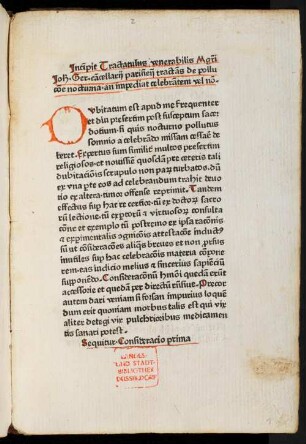 Incipit Tractatulus venerabilis Mgr̄i
Joh̄. Ger. cācellarij parisieñ tractās de pollu
cōe nocturna. an impediat celebrātem vel nō.
Dvbitatum est apud me frequenter
et diu presertim post susceptum sacer
dotium. si quis nocturno pollutus
somnio a celebrādo missam cessare de
beret. Expertus sum simili multos presertim
religiosos. et nouissime quosdā p̄ ceteris tali
dubitacionis scrupulo non parū turbatos. dū
ex vna pte eos ad celebrandum trahit deuo
tio ex altera. timor offense reprimit. Tandem
effectus sup̄ hac re certior. tū ex doctorū sacro
rū lectione. tū ex peritorū virtuosorū consulta
cōne et exemplo tū postremo ex ipsa racōnis
et experimentalis cognicōnis attestacōne. induct9
sū ut consideracōes aliq̄s breues et non prorsus
inutiles sup̄ hac celebracōis materia cōpone
rem. eas iudicio melius et sincerius sapienciū
supponēdo. Consideracōnum h̄mōi quedā erūt
accessorie et quedā per directū tensiue. Precor
autem dari veniam si forsan impurius loquē
dum erit quoniam morbus talis est qui vix
aliter detegi vix pulchrioribus medicamen
tis sanari potest.
Sequitur Consideracio prima
LANDES-
UND STADT-
BIBLIOTHEK
DÜSSELDORF